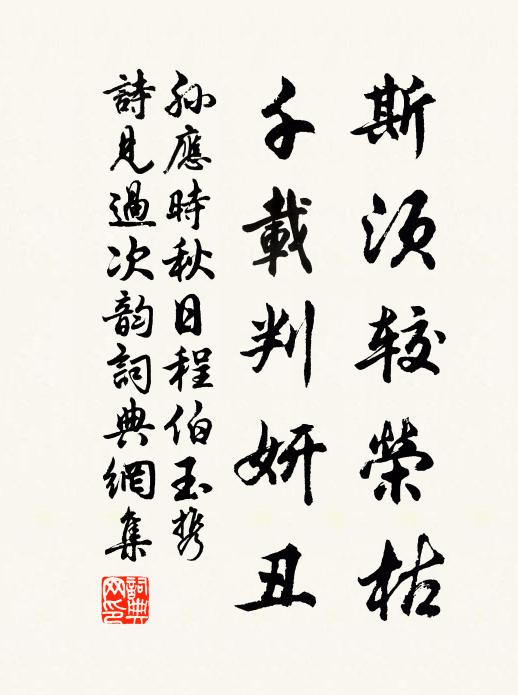 斯须较榮枯
千載判妍丑
孙應時秋日程伯玉携
詩見過次韵詞典網集
詞典網印